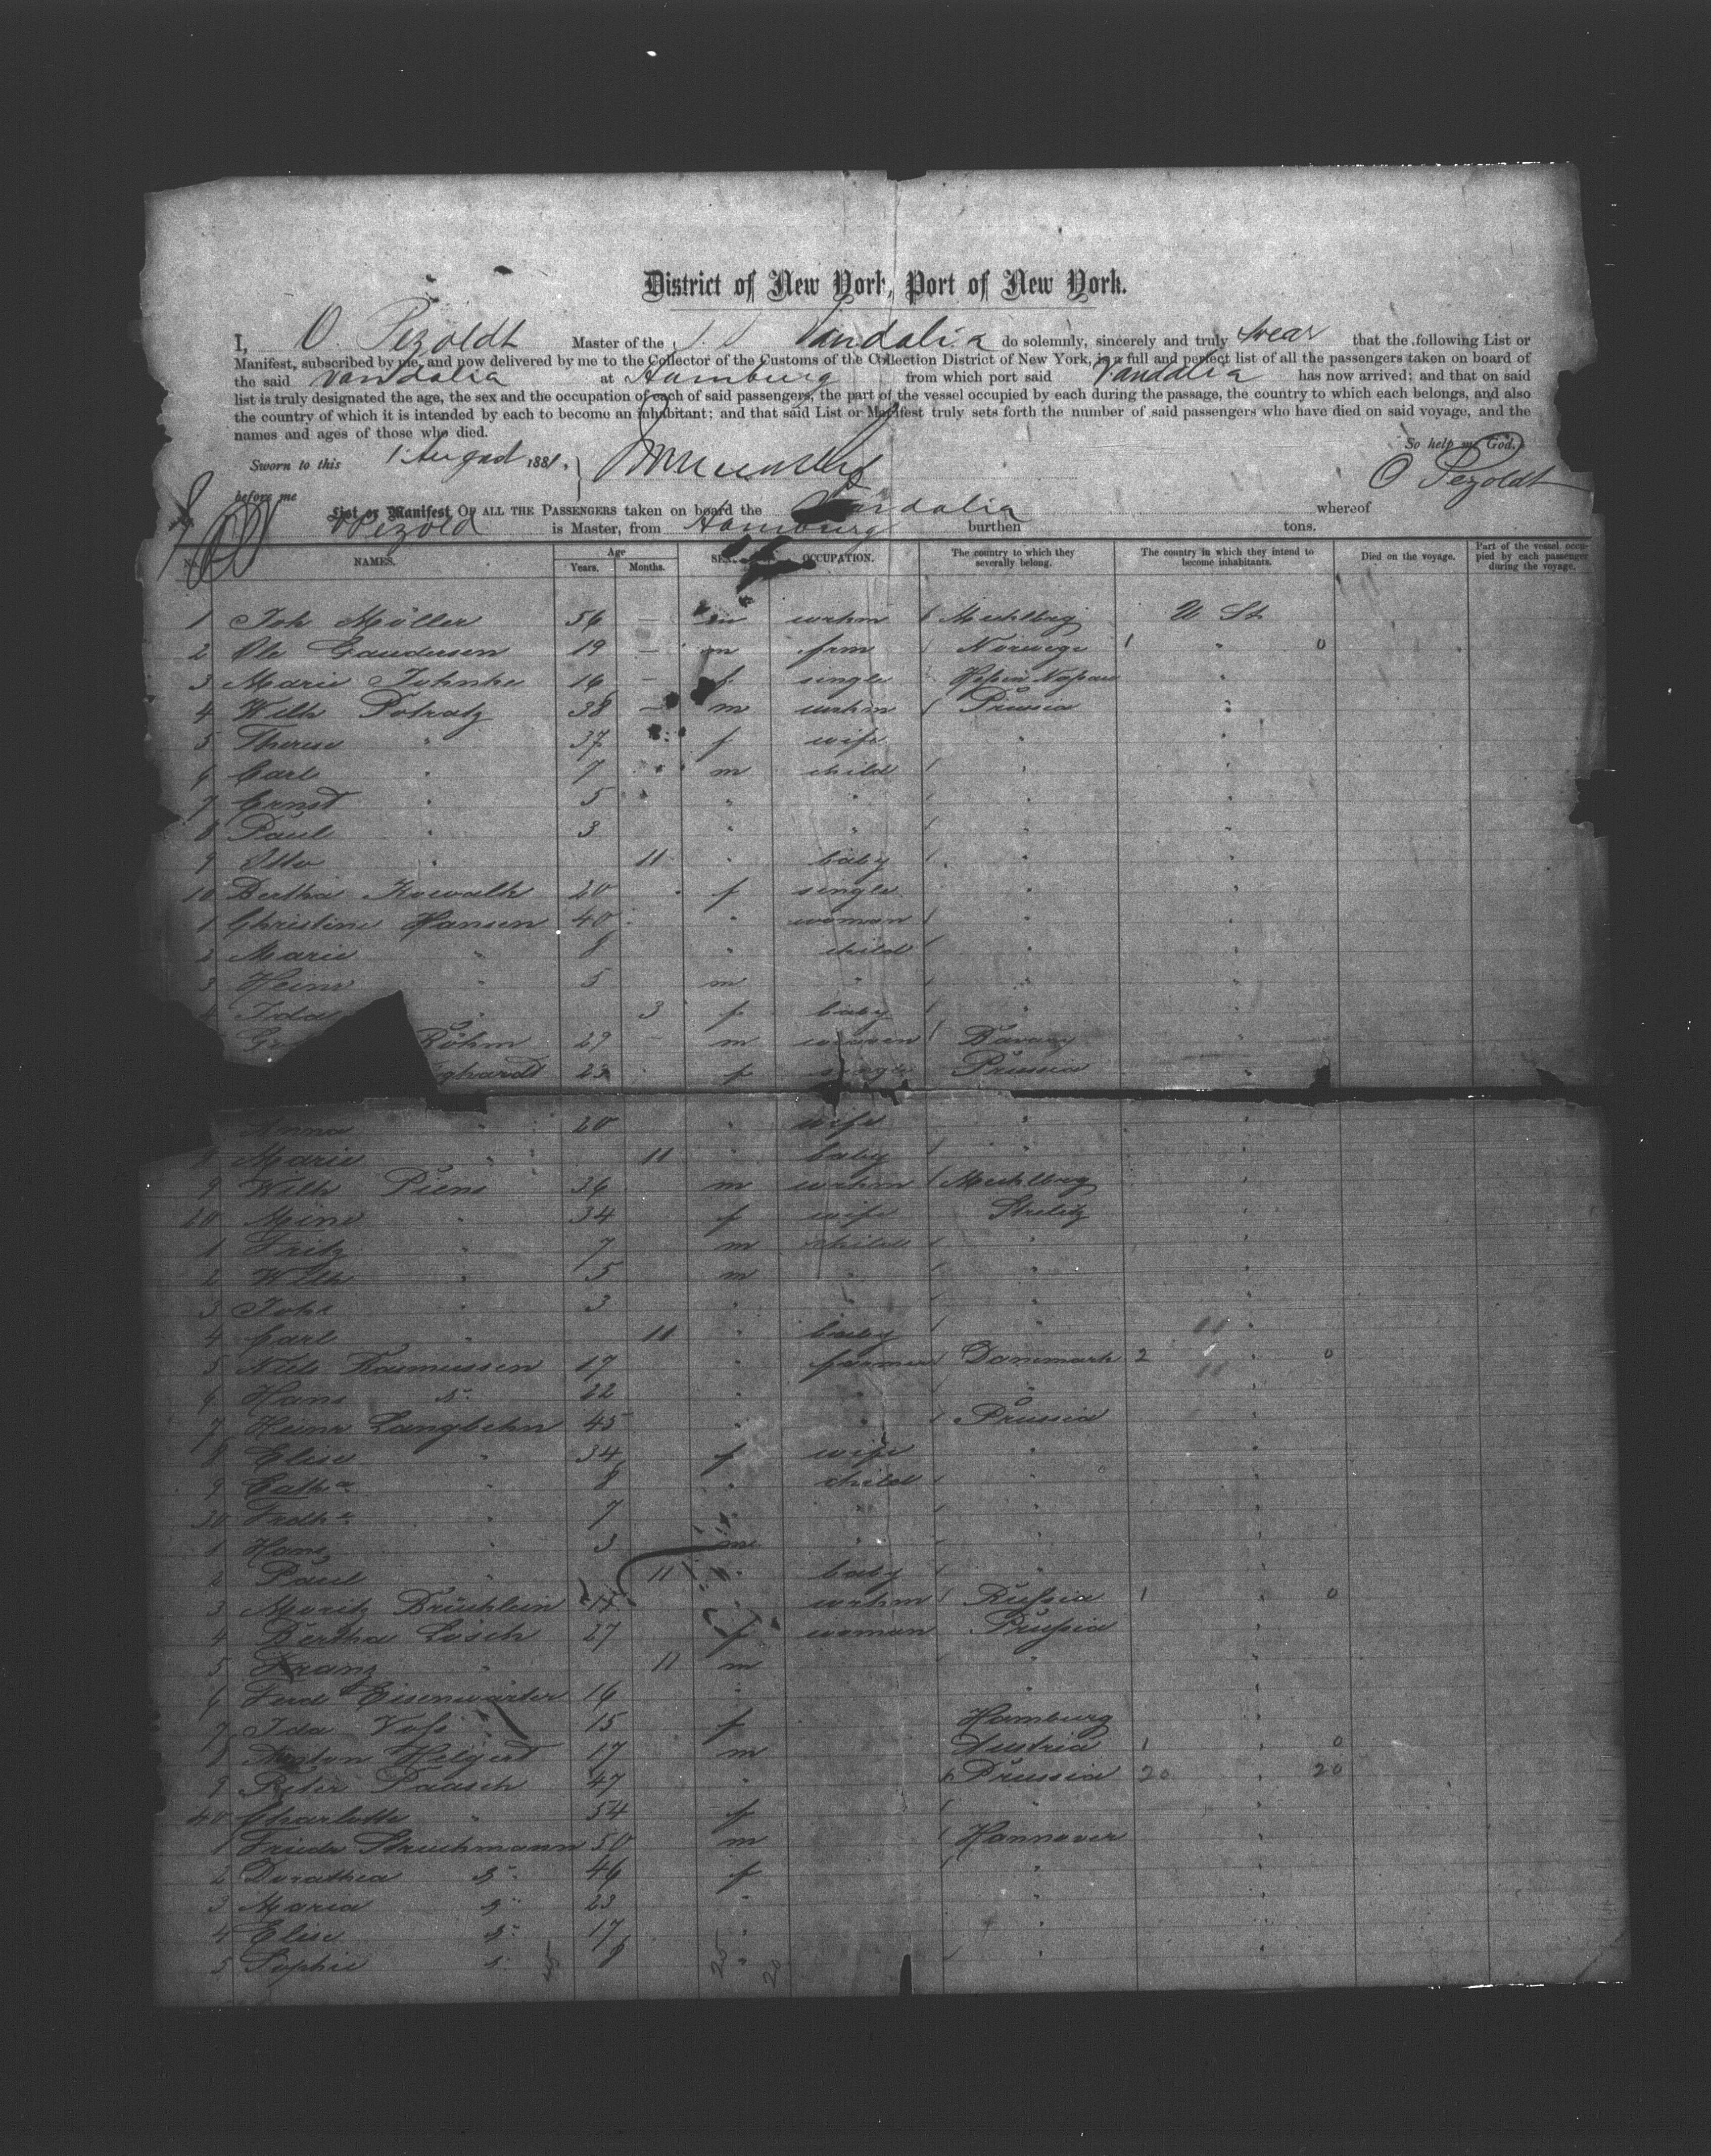 District of New York, Port of New York.
I, O. Pezoldt Master of the S. S. Vandalia do solemnly, sincerely and truly swear that the following List or
Manifest, subscribed by me, and now delivered by me to the Collector of the Customs of the Collection District of New York, is a full and perfect list of all the passengers taken on board of
the said Vandalia at Hamburg from which port said Vandalia has now arrived; and that on said
list is truly designated the age, the sex and the occupation of each of said passengers, the part of the vessel occupied by each during the passage, the country to which each belongs, and also
the country of which it is intended by each to become an inhabitant; and that said List or Manifest truly sets forth the number of said passengers who have died on said voyage, and the
names and ages of those who died.
So help me God.
Sworn to this 1 August 1881. O Pezoldt
before me
List or Manifest OF ALL THE PASSENGERS taken on board the Vandalia whereof
Pezold is Master, from Hamburg burthen tons.
No. NAMES. Age Years. Months. SEX. OCCUPATION. The country to which they severally belong. The country in which they intend to become inhabitants. Died on the voyage. Part of the vessel occupied by each passenger during the voyage.
1 Joh Müller 56 — m wrkm Mecklbrg U St
2 Ole Gaudesen 19 — m frm Norwege 1 " 0
3 Marie Johnke 16 — f single "
4 Wilh Potratz 38 — m wrkm Prussia "
5 Therese " 37 f wife " "
6 Carl " 7 m child " "
7 Ernst " 5 " " " "
8 Paul " 3 " " " "
9 Otto " 11 " baby " "
10 Bertha Kowalk 20 f single " "
1 Christine Hansen 40 " woman " "
2 Marie " 8 " child " "
3 Heinr " 5 m " " "
4 Ida " 3 f baby " "
Böhm 29 — m Bavary "
ghardt 23 f single Prussia "
Anna " 20 " wife " "
8 Marie " 11 " baby " "
9 Wilh Piens 36 m wrkm Mecklbrg "
20 Mine " 34 f wife Strelitz "
1 Fritz " 7 m child " "
2 Wilh " 5 m " " "
3 Joh " 3 " " "
4 Carl " 11 " baby " "
5 Niels Rasmussen 17 " farmer Danmark 2 " 0
6 Hans " 22 " " " "
7 Heinr Langbehn 45 " " Prussia "
8 Elise " 34 f wife " "
9 Cath a " 8 " child " "
30 Fredk a " 7 " " " "
1 Hans " 3 m " " "
2 Paul " 11 " baby " "
3 Moritz Brüchlein " wrkm Russia 1 " 0
4 Bertha Losch 27 f woman Prussia "
5 Franz " 11 m " "
6 Ferd Eisenwarter 16 " " "
7 Ida Voss 15 f Hamburg "
8 Anton Helgert 17 m Austria 1 " 0
9 Peter Paasch 47 " Prussia 20 " 20
40 Charlotte " 54 f " "
1 Frieder Struckmann 50 m Hannover "
2 Dorathea " 46 f " "
3 Maria " 23 " " "
4 Elise " 17 " " "
5 Sophie " 8 " " "
45 25 20